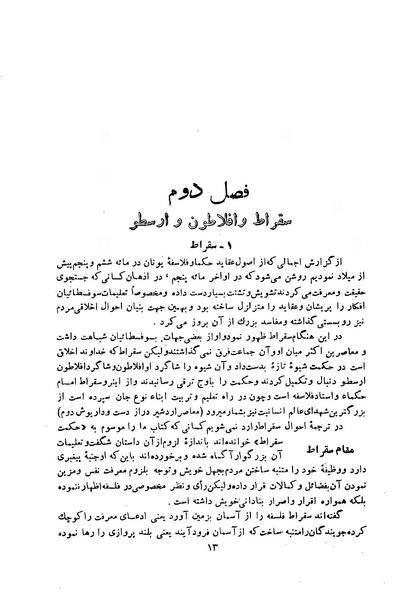 فصل دوم
سقراط و افلاطون و ارسطو
۱ - سقراط
از گزارش اجمالی که از اصول عقاید حکما و فلاسفهٔ یونان در مائه ششم و پنجم پیش
از میلاد نمودیم روشن می‌شود که در اواخر مائه پنجم ، در اذهان کسانی که جستجوی
حقیقت و معرفت می‌کردند تشویش و تشتت بسیار دست داده و مخصوصاً تعلیمات سوفسطائیان
افکار را پریشان و عقاید را متزلزل ساخته بود و بهمین جهت بنیان احوال اخلاقی مردم
نیز رو بسستی گذاشته و مفاسد بزرک از آن بروز می‌کرد .
در این هنگام سقراط ظهور نمود و او از بعضی جهات بسوفسطائیان شباهت داشت
و معاصرین اکثر میان او و آن جماعت فرق نمی‌گذاشتند ولیکن سقراط که خداوند اخلاق
است در حکمت شیوهٔ تازه بدست داد و آن شیوه را شاگرد او افلاطون و شاگرد افلاطون
ارسطو دنبال و تکمیل کردند و حکمت را باوج ترقی رساندند و از اینرو سقراط امام
حکماء و استاد فلاسفه است و چون در راه تعلیم و تربیت ابناء نوع جان سپرده است از
بزرگترین شهدای عالم انسانیت نیز بشمار میرود (معاصر اردشیر دراز دست و داریوش دوم)
در ترجمهٔ احوال سقراط وارد نمی‌شویم کسانی که کتاب ما را موسوم به «حکمت
مقام سقراط
سقراط» خوانده‌اند باندازهٔ لزوم از آن داستان شگفت و تعلیمات
آن بزرگوار آگاه شده و برخورده‌اند باین که او جنبهٔ پیغمبری
دارد و وظیفهٔ خود را متنبه ساختن مردم بجهل خویش و توجه بلزوم معرفت نفس و مزین
نمودن آن بفضائل و کمالات قرار داده ولیکن رأی و نظر مخصوصی در فلسفه اظهار ننموده
بلکه همواره اقرار و اصرار بنادانی خویش داشته است .
گفته‌اند سقراط فلسفه را از آسمان بزمین آورد یعنی ادعای معرفت را کوچک
کرده جویندگان را متنبه ساخت که از آسمان فرود آیند یعنی بلند پروازی را رها نموده
۱۳